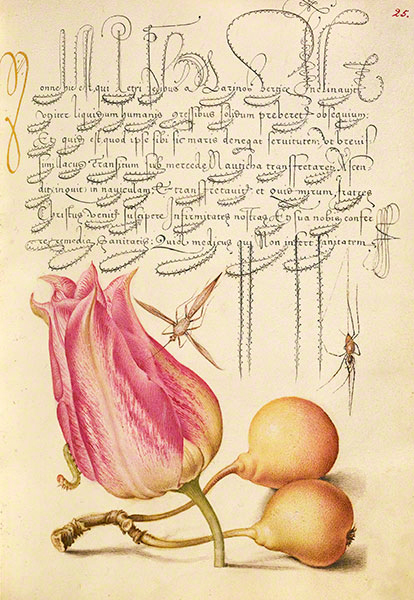 25.
onne hic est qui petri pedibus a latinos vergice inclinavit
ut iter liquidum humanis gressibus solidum preberet obsequium:
Et quis est quod ipse sibi sic maris denegat servitutem: ut brevis
simi lacus transitum sub mercede Nauticha transfretaret: Ascen-
dit inquit in naviculam, et transfretavit: et quid mirum fratres
Christus venit suscipere infirmitates nostras, et sua nobis confer
re remedia Sanitatis: Quia medicus qui Non infert sanitatem